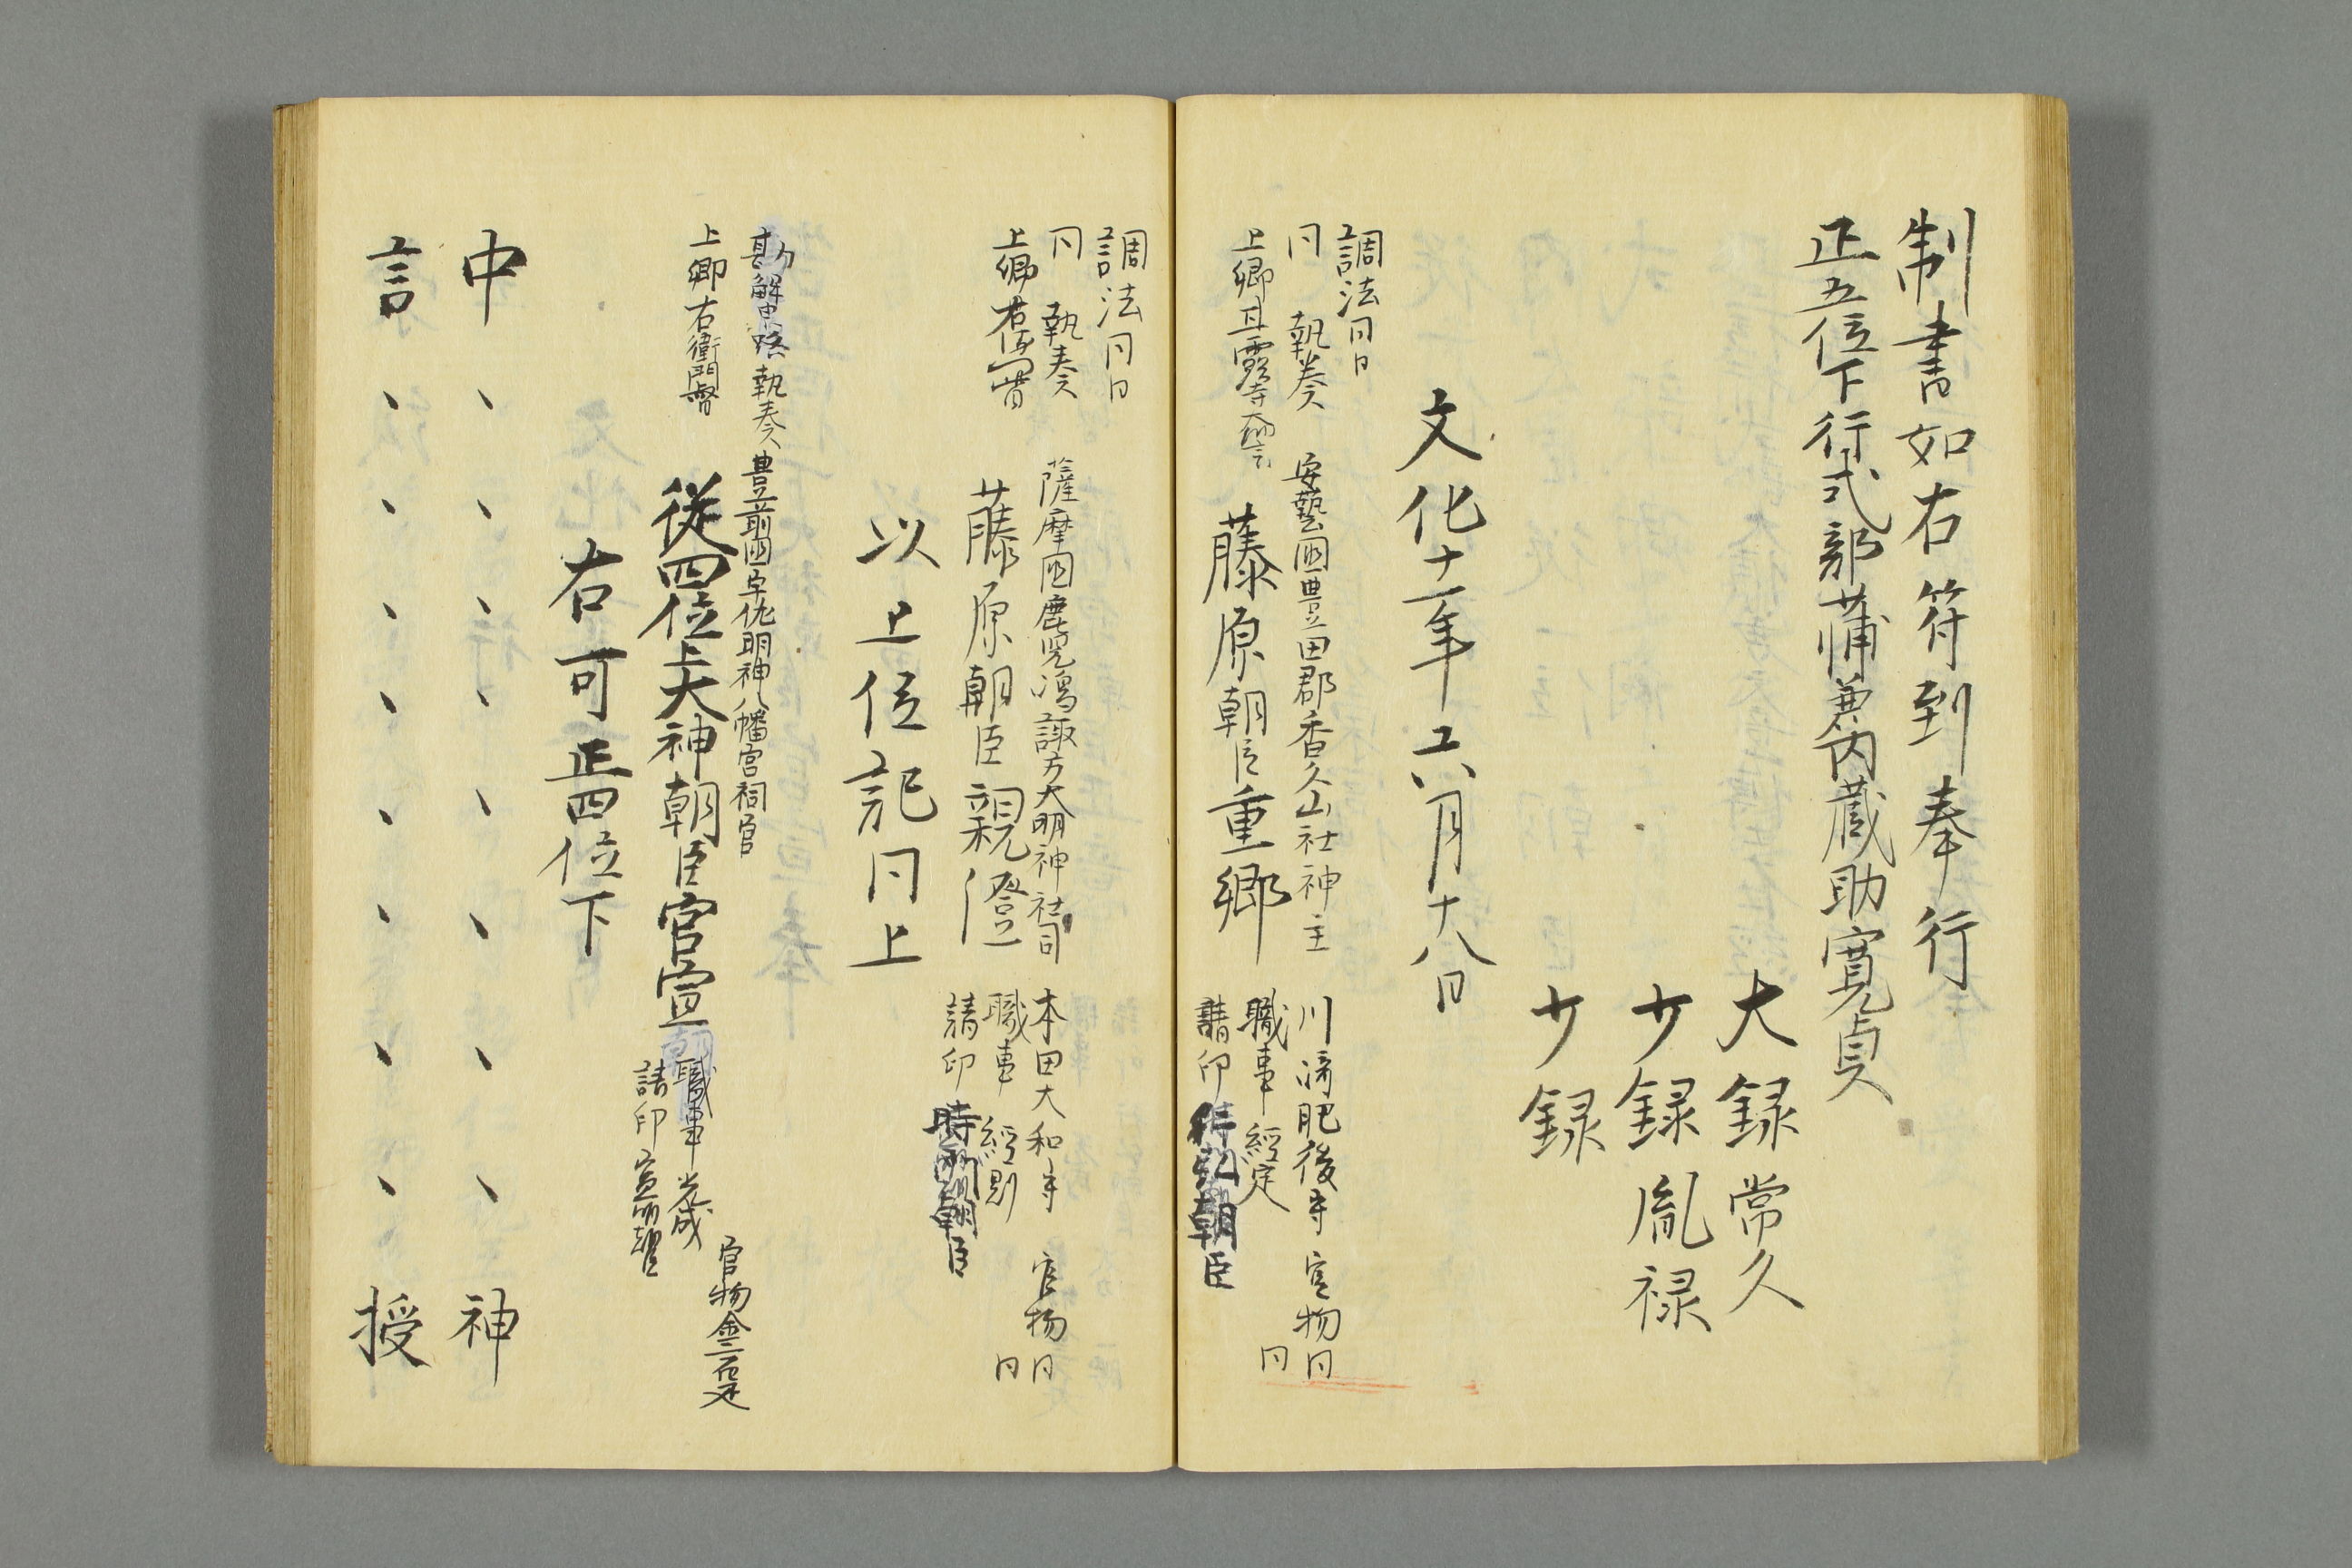 制書如右符到奉行
正五位下行式部大輔兼内蔵助寛貞
大録常久
少録胤禄
少録
文化十一年六月十八日
調法同日
同 執奏 安藝國豊田郡香久山社神主 川﨑肥後守 官物同
上卿甘露寺大納言 藤原朝臣重郷 職事 經定 同
請印 朝臣
調法同日
同 執奏 薩摩國鹿児嶋諏方大明神社司 本田大和守 官物同
上卿 藤原朝臣親澄 職事 經則 同
請印 時 朝臣
以上位記同上
勘解由小路執奏 豊前國宇佐明神八幡宮祠官 官物金二百疋
上卿右衛門督 従四位上大神朝臣官宣 職事光成
請印
右可正四位下
中、、、、、、、神
言、、、、、、、授